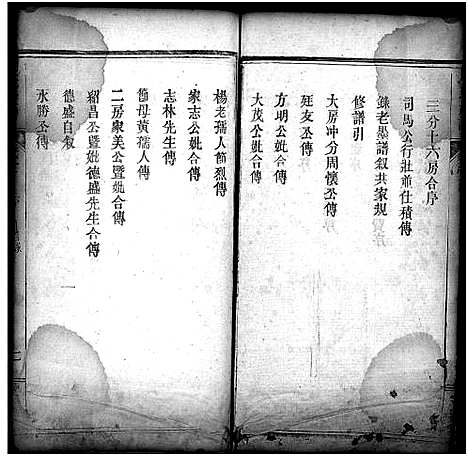 三分十六房合序
司馬公行莊並仕積傳
錄老墨譜叙共家規
修譜引
大房冲分周懷公傳
廷友公傳
方明公妣合傳
大茂公妣合傳
楊老孺人節烈傳
家志公妣合傳
志林先生傳
節母黄孺人傳
二房衆美公暨妣合傳
紹昌公暨妣德盛先生合傳
德盛自叙
永勝公傳